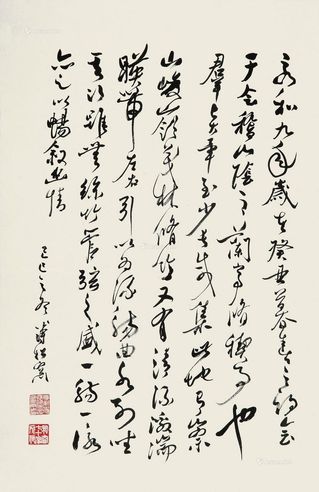 永和九年歲在癸丑暮春之初會
于會稽山陰之蘭亭脩禊事也
羣賢畢至少長咸集此地有崇
山峻嶺茂林脩竹又有清流激湍
暎帶左右引以為流觴曲水列坐
其次雖無絲竹管弦之盛一觴一詠
亦足以暢敘幽情
己巳之冬